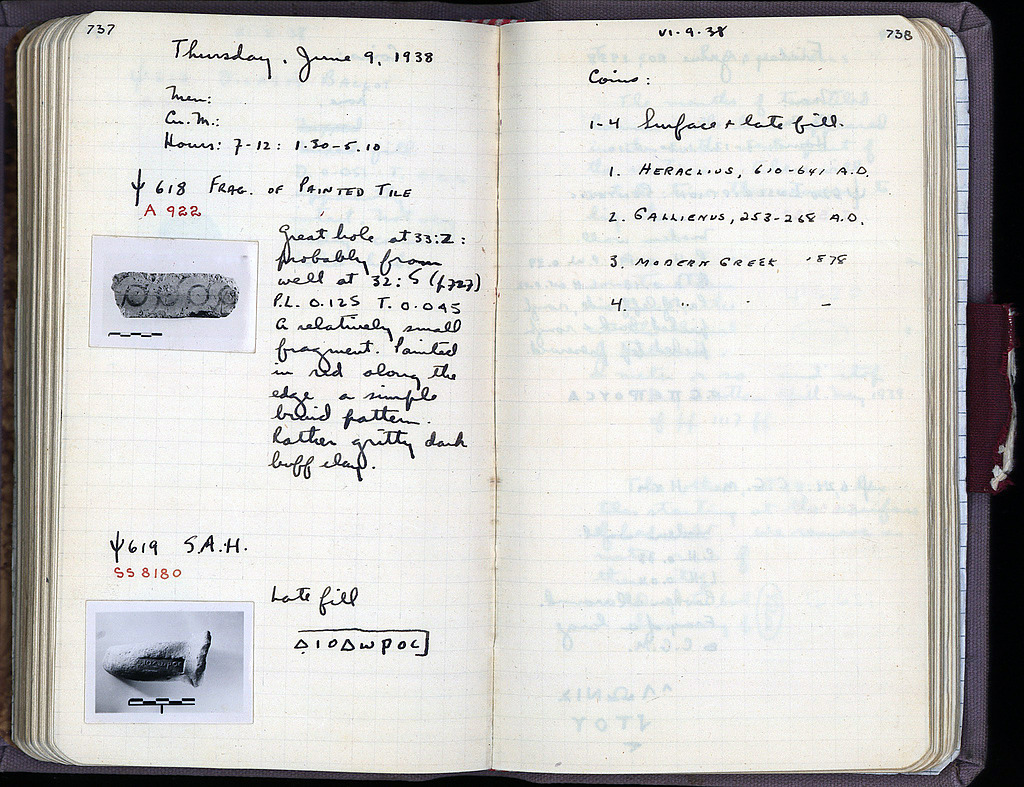 737
Thursday, June 9, 1938
Men:
Cn. M.:
Hours: 7-12: 1.30-5.10
Ψ 618 FRAG. OF PAINTED TILE
A 922
Great hole at 33:Z:
probably from
well at 32:S (p.727)
P.L. 0.125 T. 0.045
A relatively small
fragment. Painted
in red along the
edge a simple
braid pattern.
Rather gritty dark
buff clay.
Ψ 619 S.A.H.
SS 8180
Late fill
ΔΙΟΔωΡΟC
VI-9-38
738
Coins:
1-4 Surface + late fill.
1. HERACLIUS, 610-641 A.D.
2. GALLIENUS, 253-268 A.D.
3. MODERN GREEK 1878
4. " " –